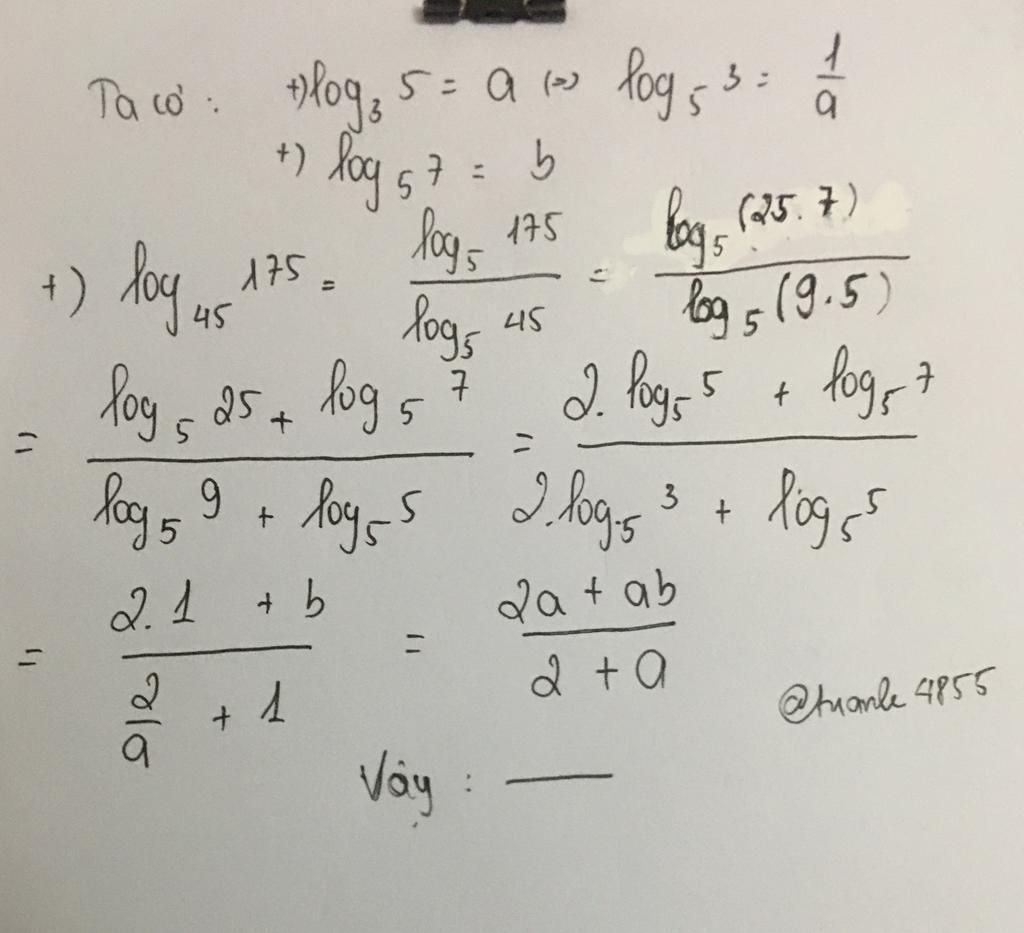 Ta có : +) log₃ 5 = a (=) log₅ 3 = 1/a
+) log₅ 7 = b
+) log₄₅ 175 = (log₅ 175)/(log₅ 45) = (log₅ (25.7))/(log₅ (9.5))
= (log₅ 25 + log₅ 7)/(log₅ 9 + log₅ 5) = (2. log₅ 5 + log₅ 7)/(2. log₅ 3 + log₅ 5)
= (2.1 + b)/(2/a + 1) = (2a + ab)/(2 + a)
@tuanle 4855
Vậy :